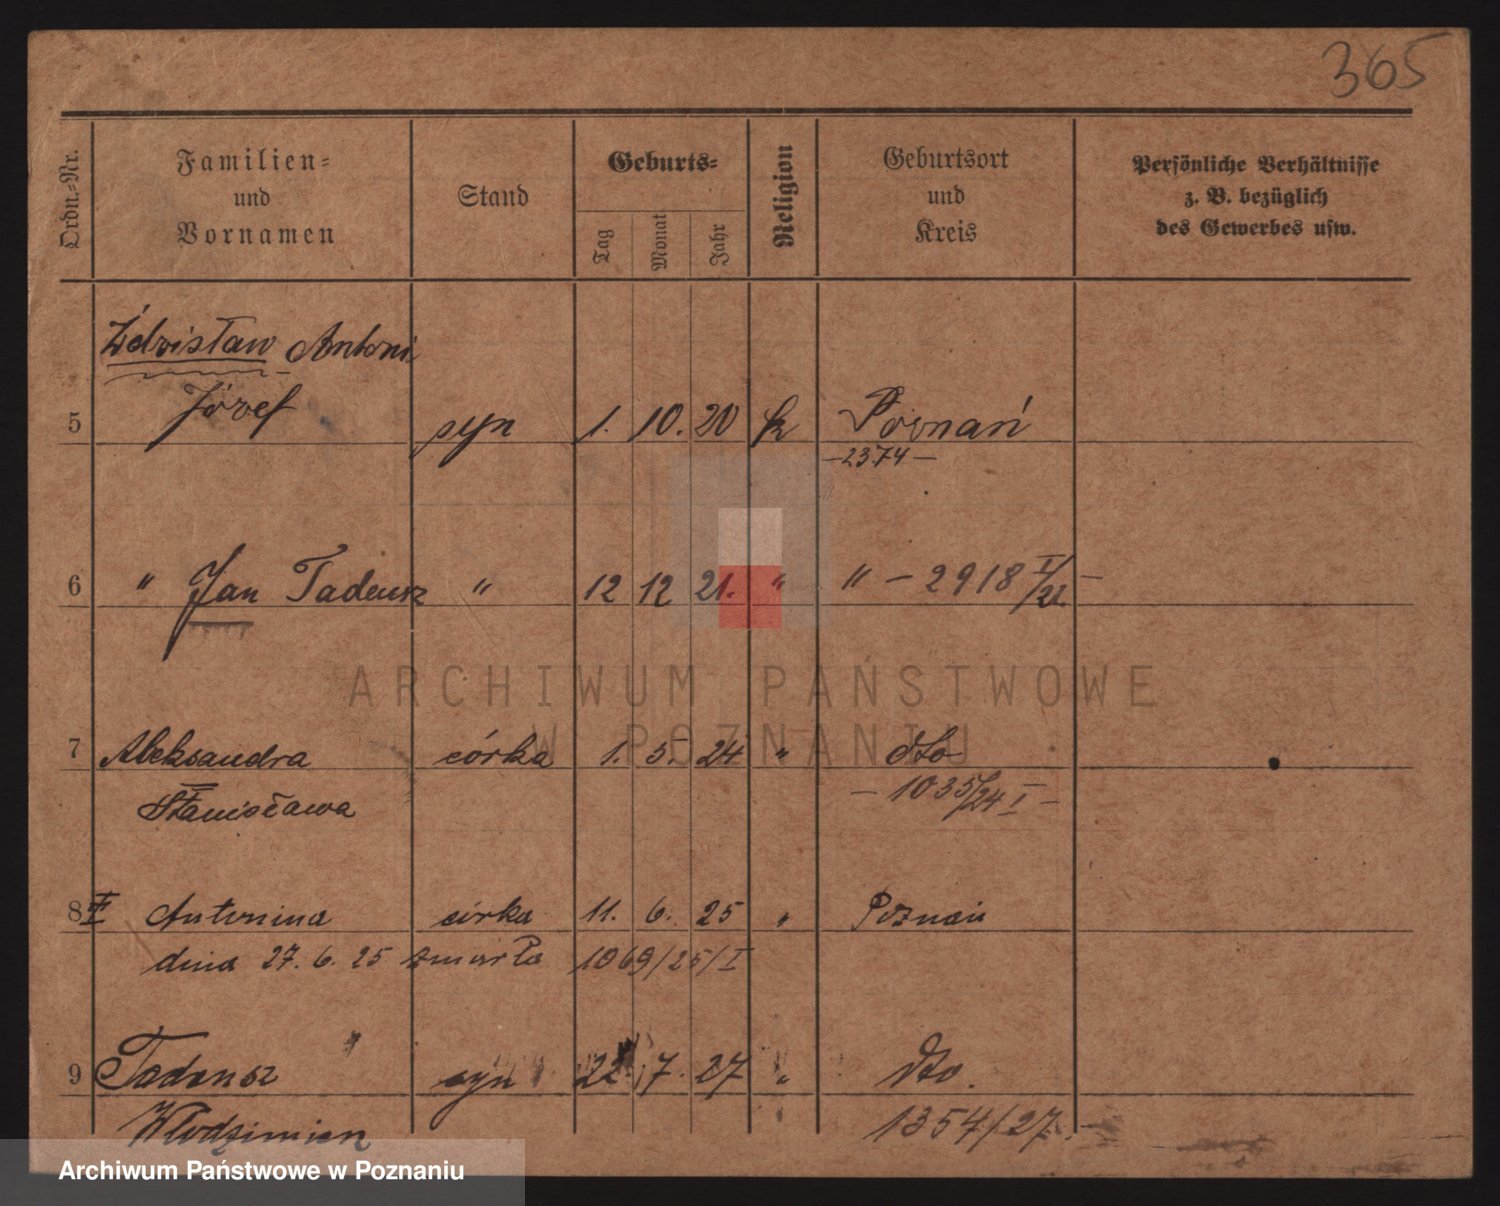 365
Ordn.-Nr.
Familien-
und
Vornamen
Stand
Geburts-
Tag
Monat
Jahr
Religion
Geburtsort
und
Kreis
Persönliche Verhältnisse
z. B. bezüglich
des Gewerbes usw.
Zdzisław Antoni
5 Józef syn 1. 10. 20 k Poznań
—2374—
6 " Jan Tadeusz " 12 12 21. " " — 2918 I/22 —
ARCHIWUM PAŃSTWOWE
W POZNANIU
7 Aleksandra córka 1. 5. 24 " dto
Stanisława — 1035/24 I —
8 Antonina córka 11. 6. 25 " Poznań
dnia 27. 6. 25 zmarła 1069/25/I
9 Tadeusz syn 22. 7. 27 " dto.
Włodzimierz 1354/27.
Archiwum Państwowe w Poznaniu